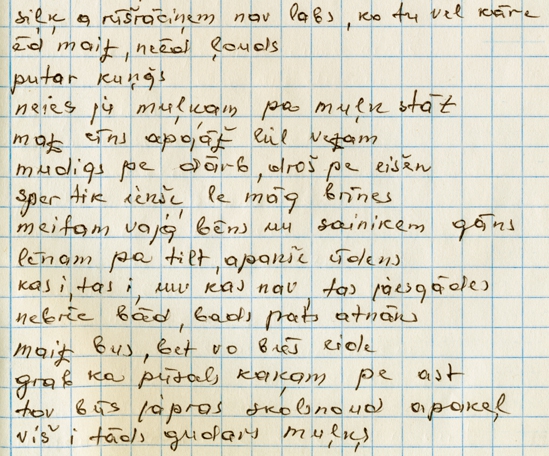 siļķ a rūšrāciņem nav labs, ko tu vel kāre
ēd maiz, neēd ļouds
putar kuņģs
neies jū muļkam pa muļk stāt
maz cīns apajāž liel vezam
mudigs pe dārb, droš pe eišen
sper tik iênše, le māg brines
meitam vajg bēns un sainikem gāns
lēnam pa tilt, apakše ūdens
kas i, tas i, un kas nav, tas jāesgādes
nebrēc bād, bads pats atnāks
maiz bus, bet vo būs eide
grab ka pūsals kakam pe ast
tov būs jāpras skolnoud apakeļ
viš i tāds gudais muļķs